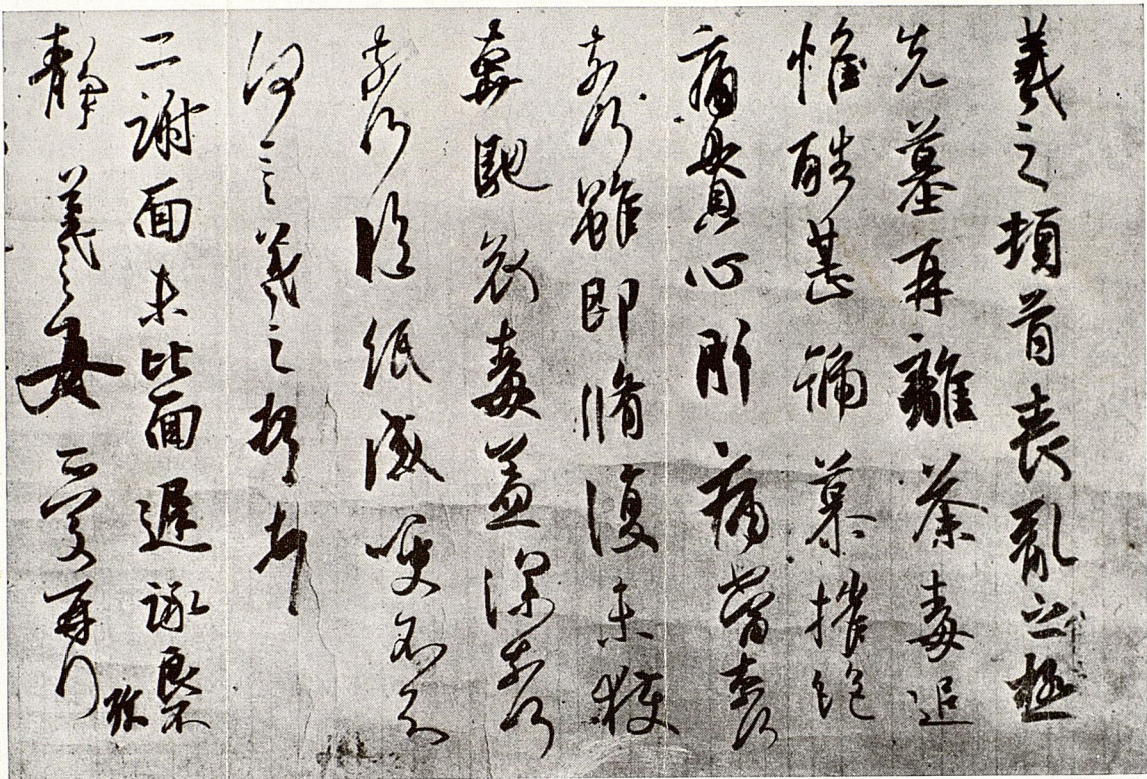 羲之頓首喪亂之極
先墓再離荼毒追
惟酷甚號慕摧絕
痛貫心肝痛當奈何
奈何雖即脩復未獲
奔馳哀毒益深奈何
奈何臨紙感哽不知
何言羲之頓首頓首
二謝面未比面遲詠良不
靜羲之女愛再拜